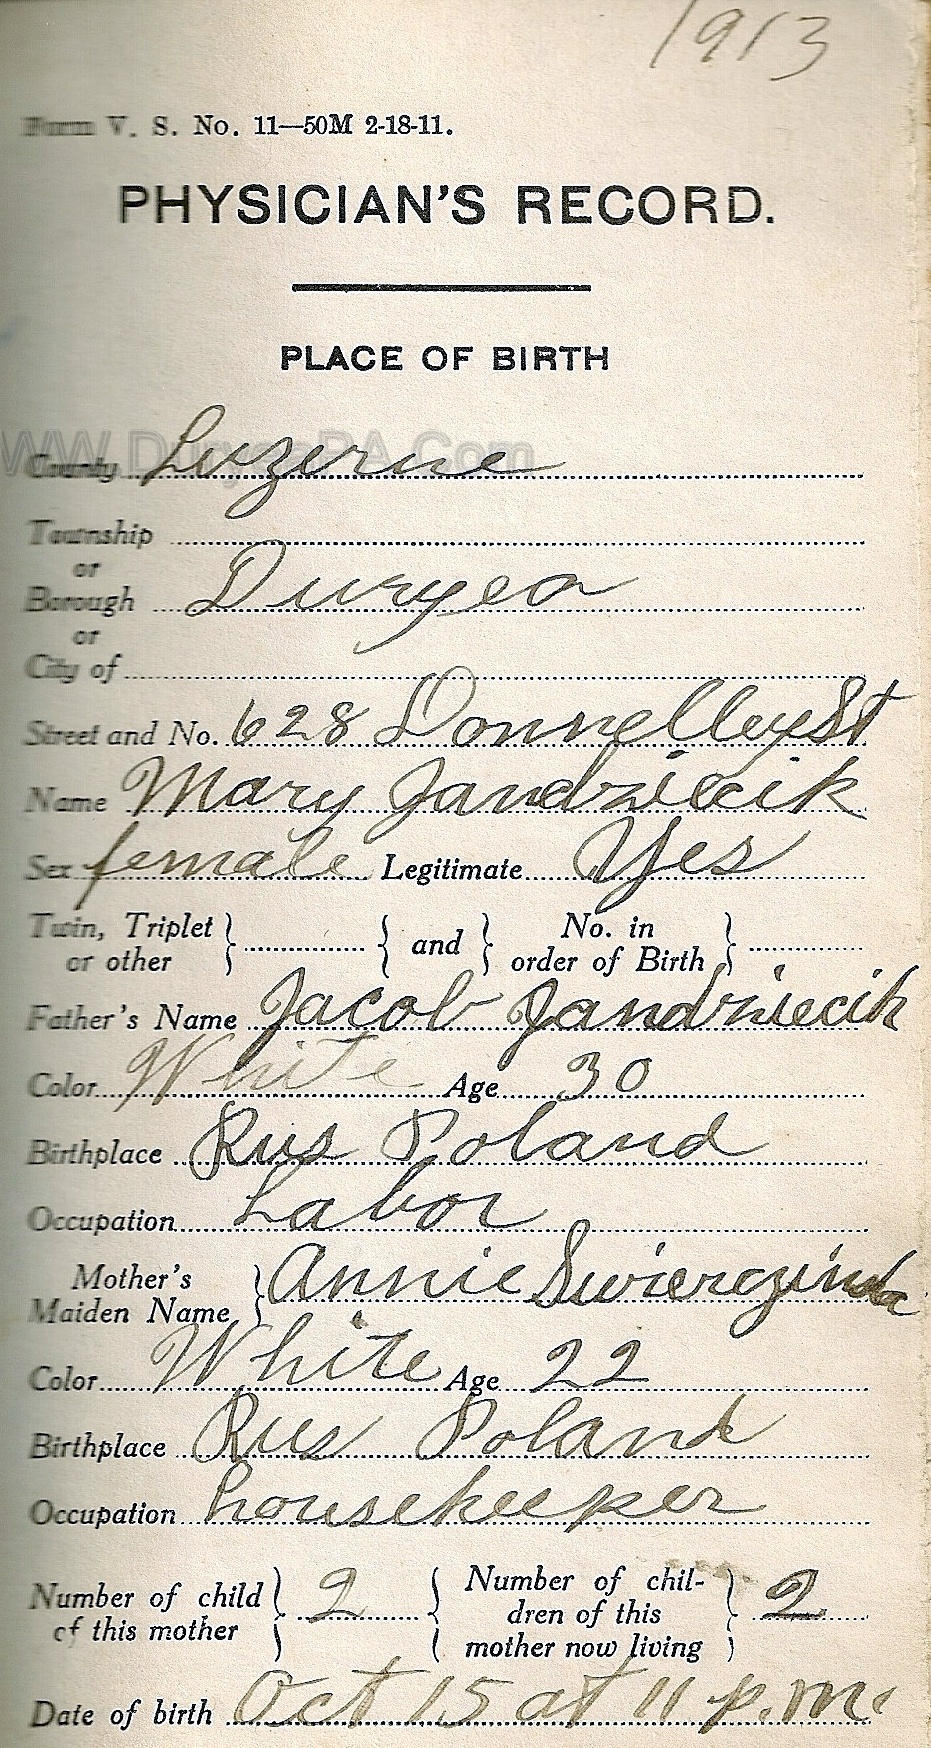 1913
Form V. S. No. 11—50M 2-18-11.
PHYSICIAN'S RECORD.
PLACE OF BIRTH
WWW.DuryeaPA.Com
County Luzerne
Township
or
Borough Duryea
or
City of
Street and No. 628 Donnelley St
Name Mary Jandziecik
Sex female Legitimate Yes
Twin, Triplet or other } { and } No. in order of Birth }
Father's Name Jacob Jandziecik
Color White Age 30
Birthplace Rus Poland
Occupation Labor
Mother's Maiden Name } Annie Swierczinda
Color White Age 22
Birthplace Rus Poland
Occupation housekeeper
Number of child of this mother } 2 { Number of chil-dren of this mother now living } 2
Date of birth Oct 15 at 11 p.m.